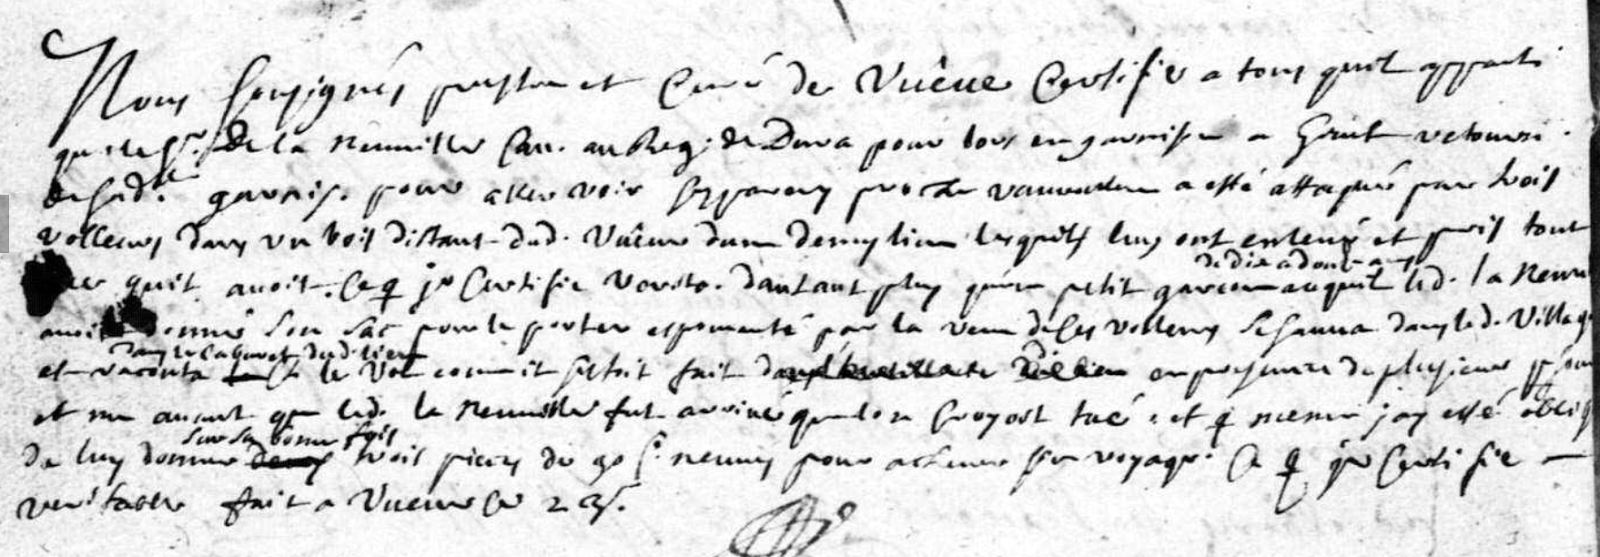 Nous soussignés prestre et Curé de Vueue Certifie a tous quil apparti
que le Sr. de la Neuuille Cau. au Reg. de Dura pour lors en garnison a retourn
de sad. garnis. pour aller voir ses parens proche a esté attaqué par trois
volleurs dans un bois distant dud. Vueue dune demy lieue lesquels luy ont enleué et pris tout
ce quil auoit. Ce q je Certifie verité. dautant plus quun petit garcon
de dix a douze ans
auquel led. la Neuu
auoit donné son sac pour le porter espouuanté par la veue de ces volleurs se sauua dans led. Villag
et raconta
dans le cabaret dud. lieu
le Vol comme il sestoit fait en presence de plusieurs
et me auant que led. la Neuuille fut arriué que lon croyoit tué. et q mesme jay esté oblig
de luy donner
sur sa bonne foy
trois pieces de 30 s. neuues pour acheuer son voyage. Ce q je Certifie
veritable fait a Vueue Ce